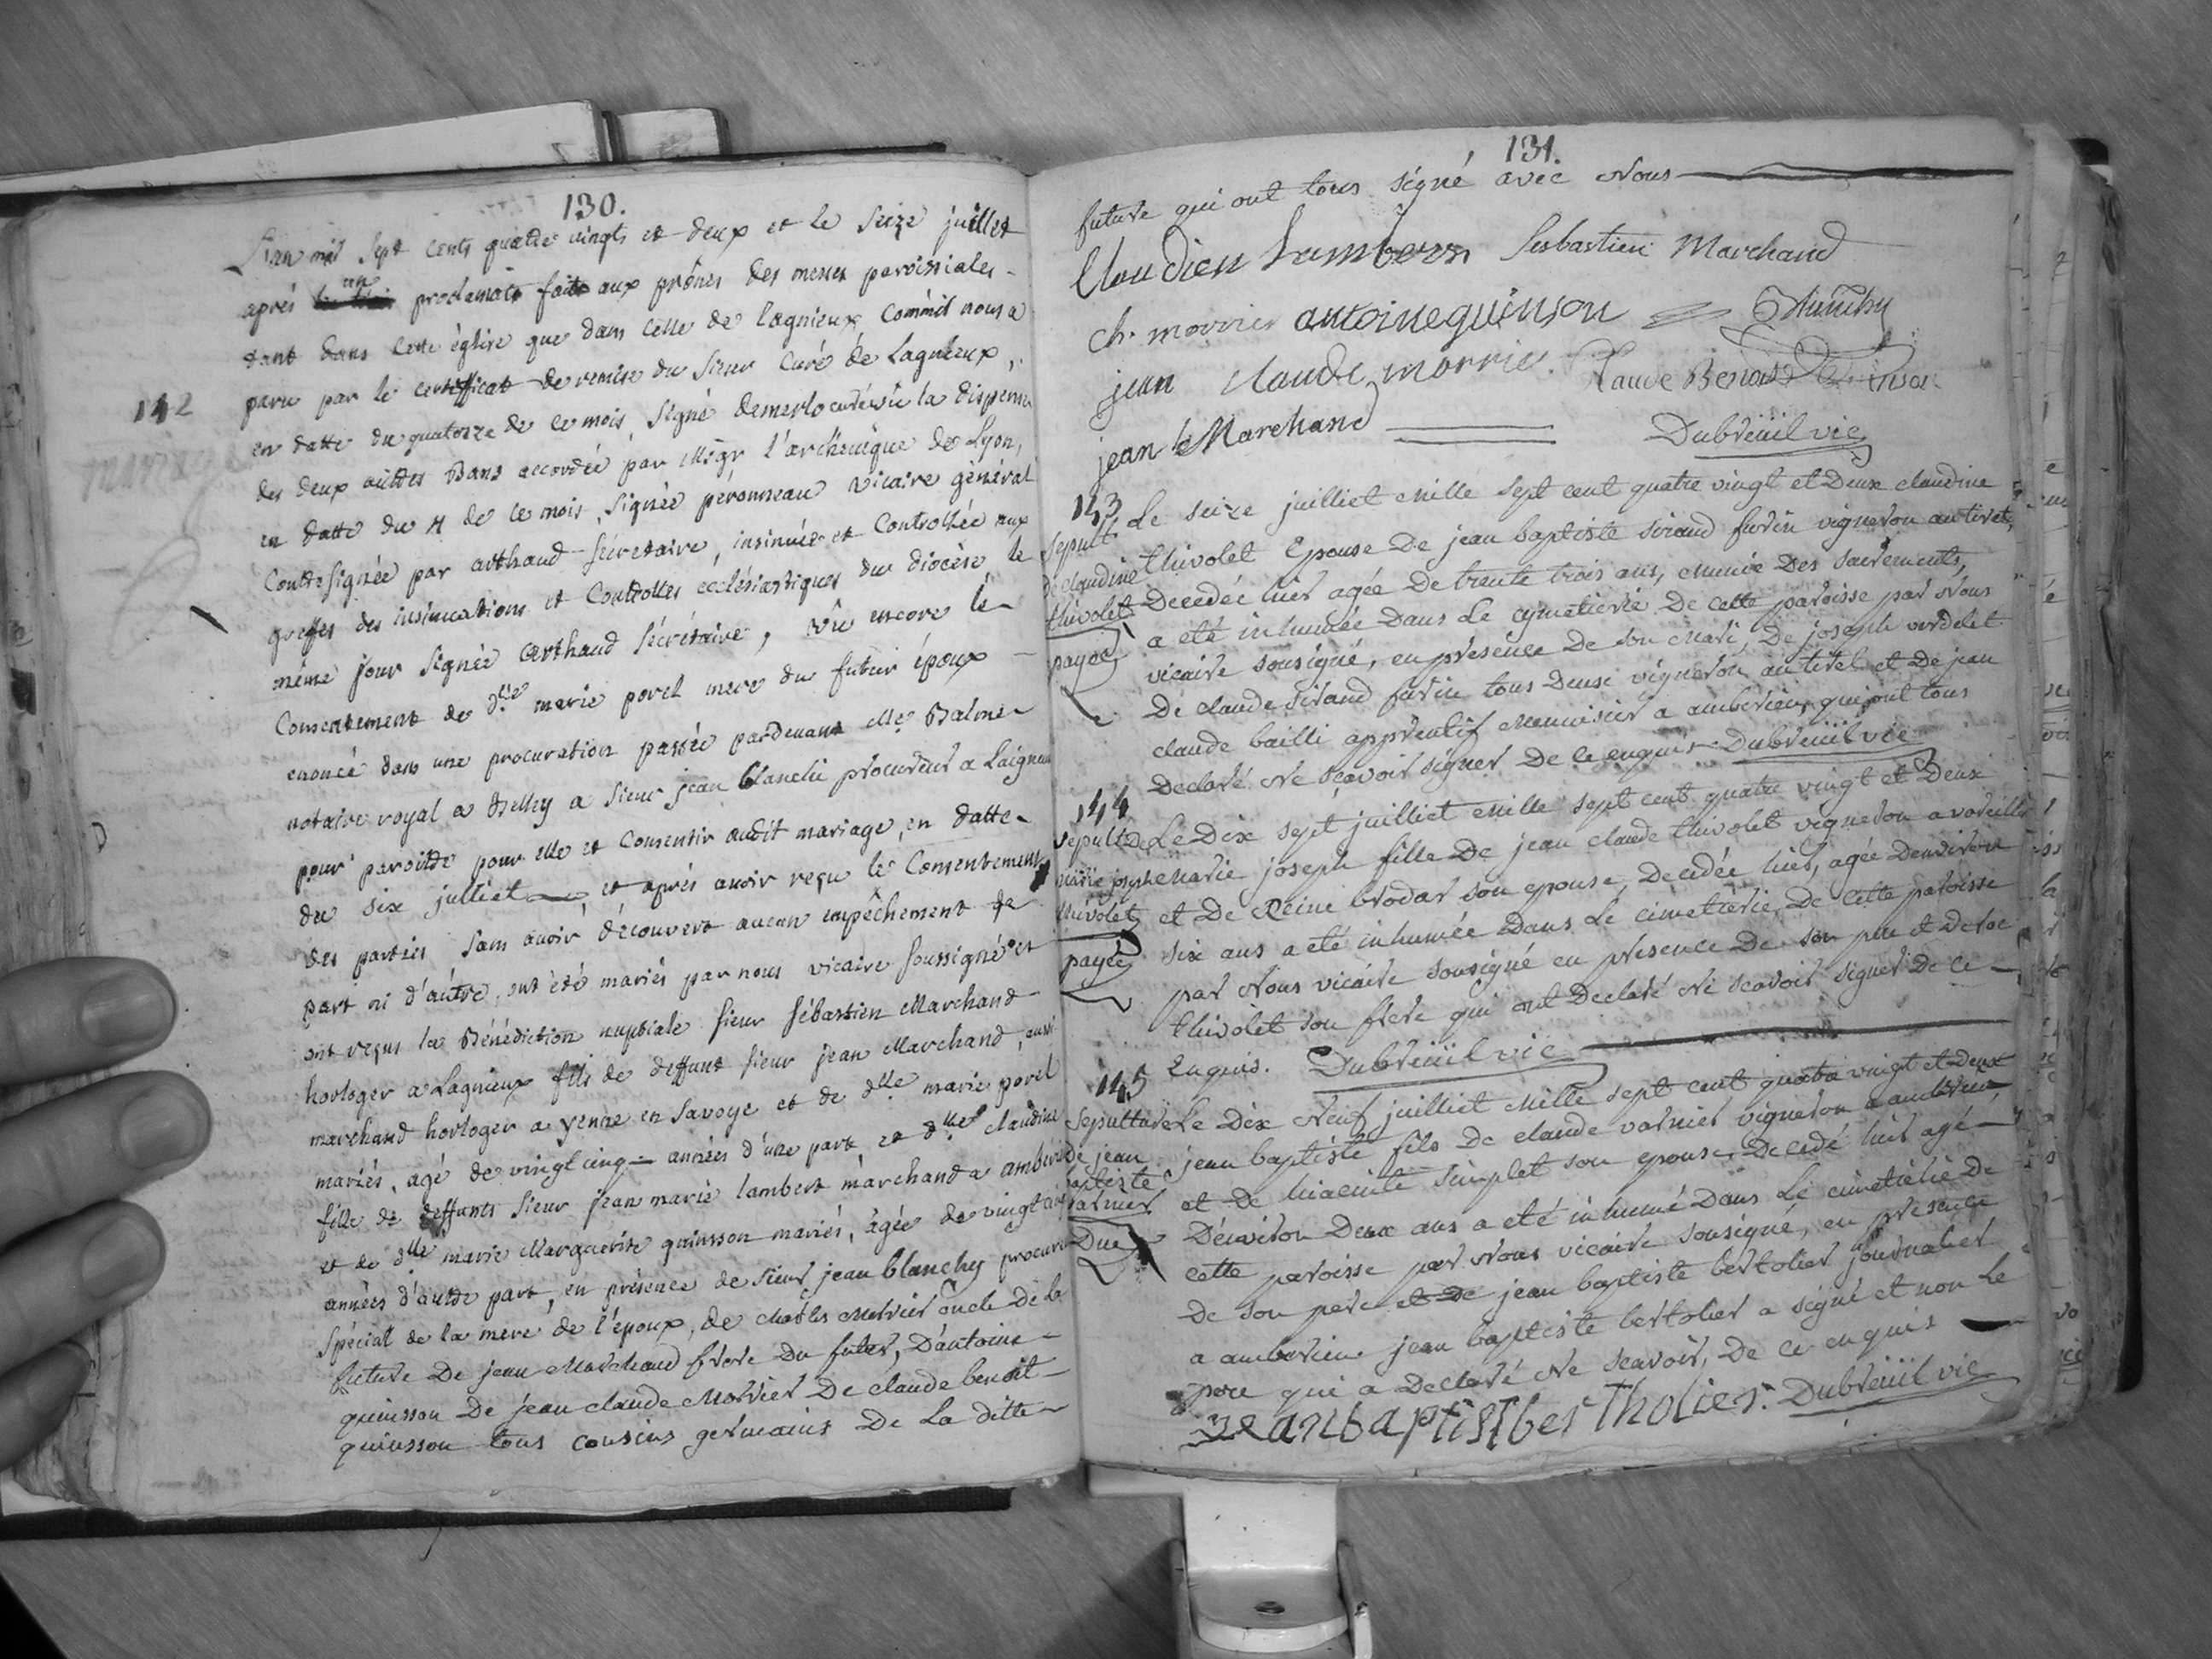 130.
L'an mil sept cents quatre vingts et deux et le seize juillet
après un proclamation faite aux prônes des messes paroissiales
tant dans cette église que dans celle de lagnieux, comme il nous a
142
paru par le certifficat de remise du sieur curé de Lagnieux,
en datte du quatorze de ce mois, signé demerloc curé, vù la dispense
des deux autres Bans accordée par Mgr l'archevêque de Lyon,
en datte du 11 de ce mois, signée péronneau vicaire général
Contresignée par arthaud sécretaire, insinuée et Controllée aux
greffes des insinuations et Controlles écclésiastiques du diocèse le
même jour signée arthaud sécrétaire, vû encore le
Consentement de dlle marie porel mere du futur époux
enoncé dans une procuration passée pardevant Me Balme
notaire royal a Belley a sieur jean blanchi procureur a Laigneu
pour paroitre pour elle et Consentir audit mariage, en datte
du six julliet et après avoir reçu le Consentement
des parties sans avoir découvert aucun empêchement de
part ni d'autre, ont été mariés par nous vicaire soussigné et
ont reçus la Bénédiction nuptiale sieur sébastien Marchand
horloger a Lagnieux fils de deffunt sieur jean Marchand, aussi
marchand horloger a yenne en Savoye et de dlle marie porel
mariés, agé de vingt cinq = années d'une part, et dlle claudine
fille de deffunts sieur jean marie lambert marchand a amberi
et de dlle marie Marguerite quinsson mariés, âgée de vingt
années d'autre part, en présence de sieur jean blanchy procureur
spécial de la mere de l'époux, de Morrier oncle De La
future De jean Marchand frere Du futur, D'antoine
quinsson De jean claude Morrier De claude benoit
quinsson tous cousins germains De La ditte
131.
future qui ont tous signé avec Nous
Claudien Lambert Sesbastien Marchand
ch. morrier antoine quinson Blanchy
jean claude morrier. Claude Benoist Quinson
jean le Marchand Dubreüil vic
143
Sepult.
de claudine
thivolet
payée
Le seize juilliet Mille sept cent quatre vingt et Deux claudine
thivolet Epouse De jean baptiste siraud furin vigneron au tiret,
Decedée hier agée De trente trois ans, Munie Des sacrements,
a eté inhumée Dans Le cymetierre De cette paroisse par Nous
vicaire sousigné, en présence De son Mari, De joseph verdelet
De claude siraud furin tous Deux vigneron au tiret et De jean
claude bailli apprentif Menuisier a amberieux qui ont tous
Declaré Ne sçavoir signer De ce enquis Dubreüil vic
144
Sepultre De
Marie joseph
thivolet
payée
Le Dix sept juilliet Mille sept cent quatre vingt et Deux
Marie joseph fille De jean claude thivolet vigneron a vareilles
et De Reine brodar son epouse, Decedée hier, agée Denviron
six ans a eté inhumée Dans Le cimetierre De cette paroisse
par Nous vicaire sousigné en presence De son pere et De
thivolet son frere qui ont Declaré Ne scavoir signer De ce
Enquis. Dubreüil vic
145
Sepultture
de jean
baptiste
varnier
Due
Le Dix Neuf juilliet Mille sept cent quatre vingt et Deux
jean baptiste fils De claude varnier vigneron a amberieux
et De hiacinte simplet son epouse, Decedé hier agé
Denviron Deux ans a eté inhumé Dans Le cimetierre De
cette paroisse par Nous vicaire sousigné, en presence
De son pere et De jean baptiste bertolier journalier
a amberieux jean baptiste bertolier a signé et non Le
pere qui a Declaré Ne scavoir, De ce enquis
jeanbaptistbertholier. Dubreüil vic